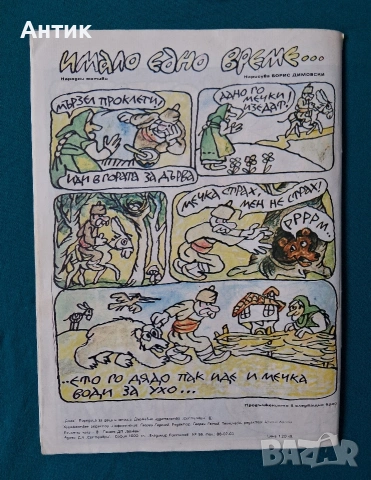 Антик
имало едно време...
Народни мотиви
Нарисува БОРИС ДИМОВСКИ
МЪРЗЕЛ ПРОКЛЕТИ,
ИДИ В ГОРАТА ЗА ДЪРВА
ДАНО ГО
МЕЧКИ
ИЗЕДАТ!
МЕЧКА СТРАХ,
МЕН НЕ СТРАХ!
РРРРМ..
..ЕТО ГО ДЯДО ПАК ИДЕ И МЕЧКА
ВОДИ ЗА УХО...
Продължението в следващия брой
BAZAR